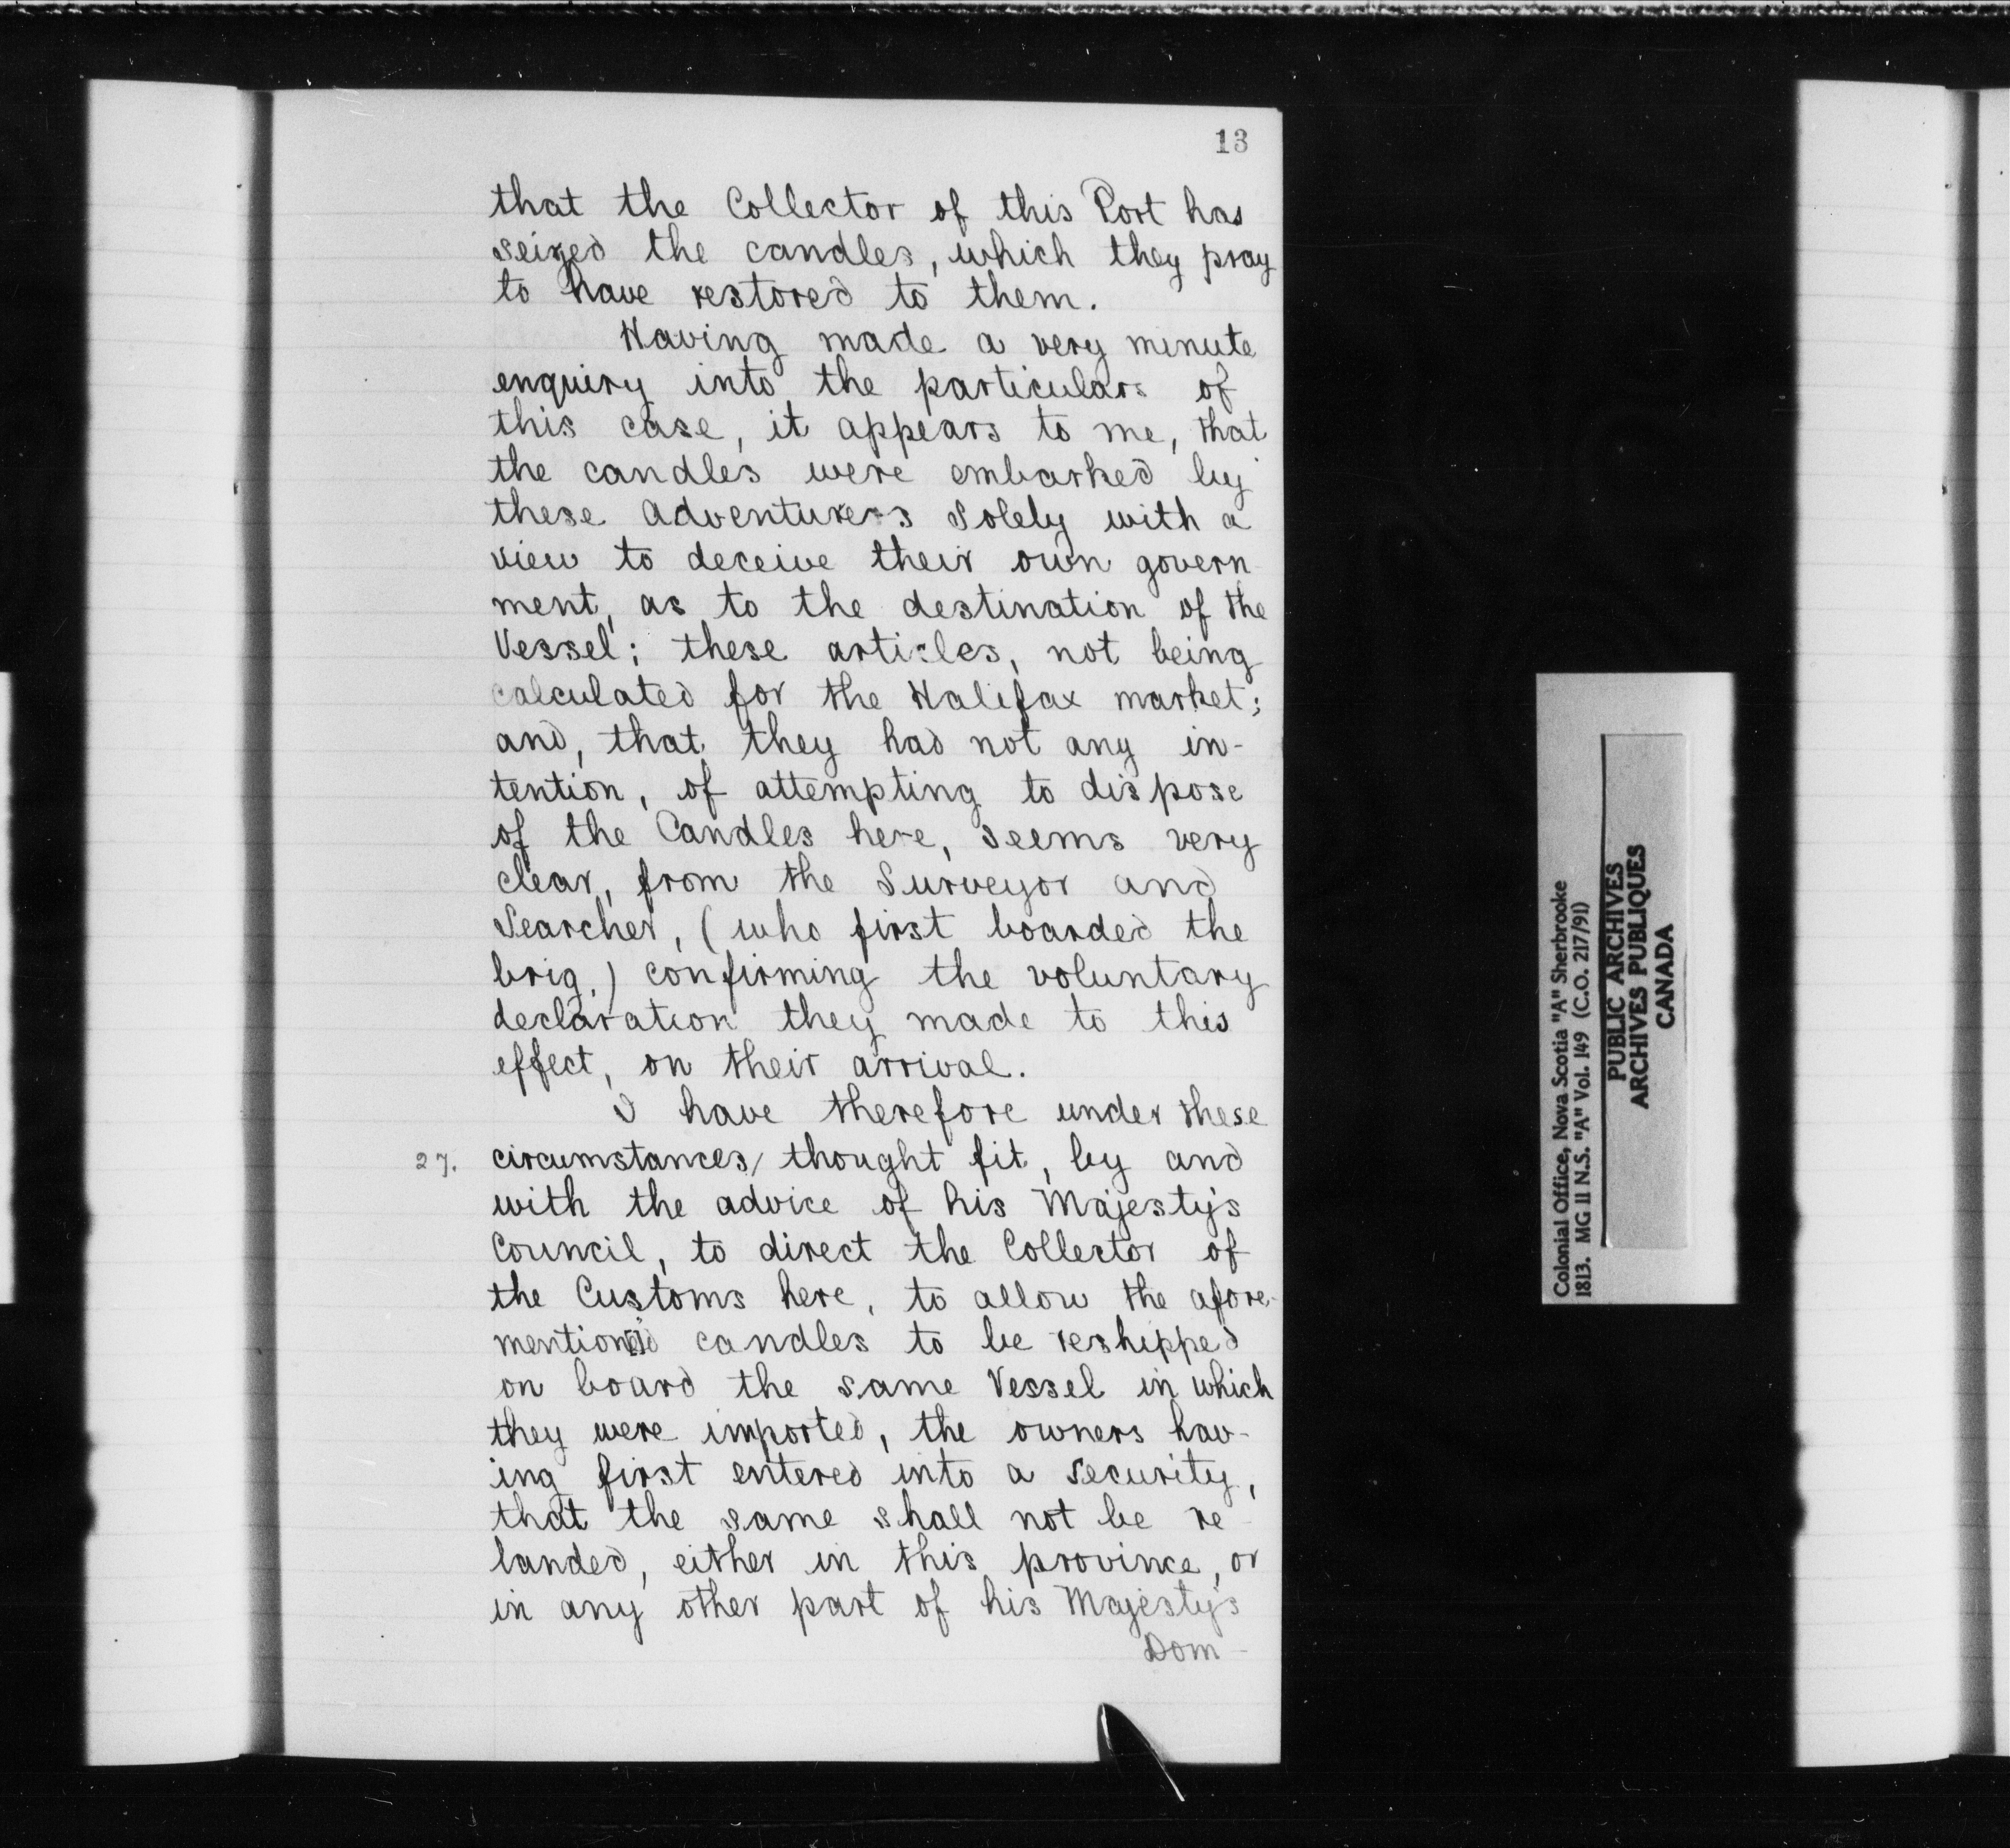 13
that the Collector of this Port has
seized the candles, which they pray
to have restored to them.
Having made a very minute
enquiry into the particulars of
this case, it appears to me, that
the candles were embarked by
these adventurers solely with a
view to deceive their own govern
ment, as to the destination of the
Vessel; these articles, not being
calculated for the Halifax market;
and, that, they had not any in-
tention, of attempting to dispose
of the Candles here, seems very
clear, from the Surveyor and
Searcher, (who first boarded the
brig,) confirming the voluntary
declaration they made to this
effect, on their arrival.
I have therefore under these
27. circumstances, thought fit, by and
with the advice of his Majesty's
Council, to direct the Collector of
the Customs here, to allow the afore-
mentioned candles to be reshipped
on board the same Vessel in which
they were imported, the owners hav-
ing first entered into a security,
that the same shall not be re-
landed, either in this province, or
in any other part of his Majesty's
Dom-
Colonial Office, Nova Scotia "A" Sherbrooke
1813. MG 11 N.S. "A" Vol. 149 (C.O. 217/91)
PUBLIC ARCHIVES
ARCHIVES PUBLIQUES
CANADA